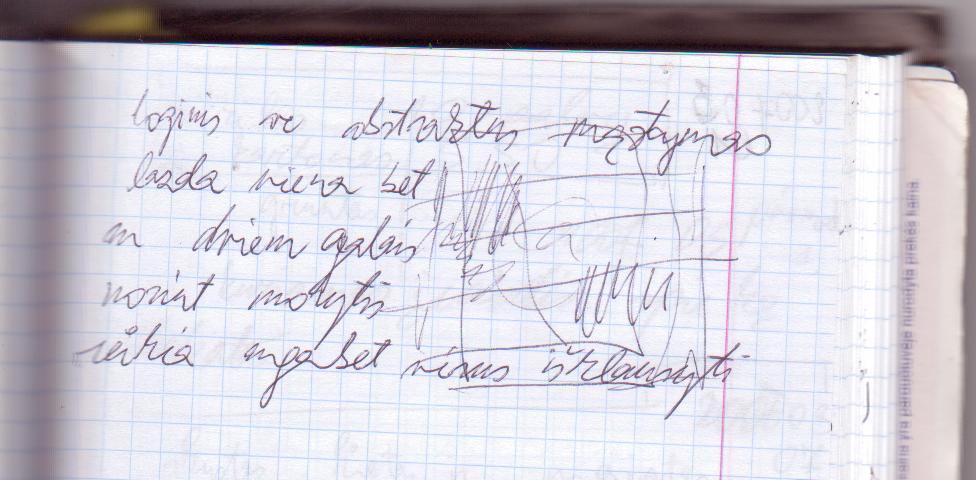 loginis vs abstraktus mąstymas
lazda viena bet
su dviem galais
norint mokytis
reikia mokėt visus išklausyti
kaina yra parduotuvėje nurodyta prekės kaina.